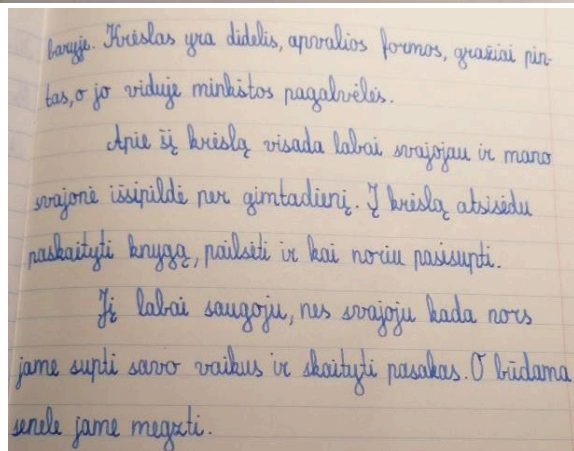 baryje. Krėslas yra didelis, apvalios formos, gražiai pin-
tas, o jo viduje minkštos pagalvėlės.
Apie šį krėslą visada labai svajojau ir mano
svajonė išsipildė per gimtadienį. Į krėslą atsisėdu
paskaityti knygą, pailsėti ir kai noriu pasisupti.
Jį labai saugoju, nes svajoju kada nors
jame supti savo vaikus ir skaityti pasakas. O būdama
senele jame megzti.